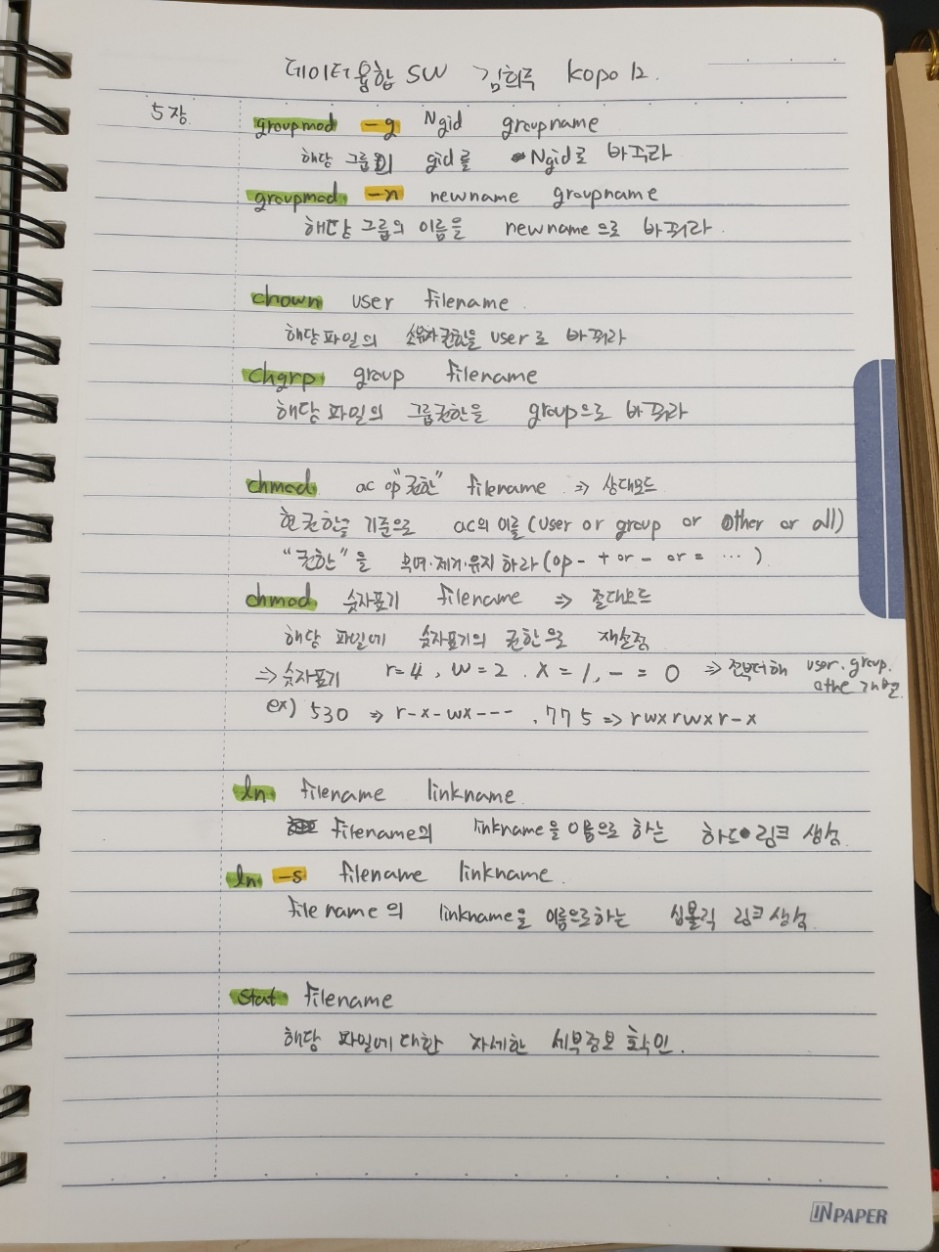 데이터융합SW 김희준 kopo12.
5장
groupmod -g Ngid groupname
해당 그룹의 gid를 Ngid로 바꿔라
groupmod -n newname groupname
해당 그룹의 이름을 newname으로 바꿔라.
chown user filename
해당파일의 소유자권한을 user로 바꿔라
chgrp group filename
해당 파일의 그룹권한을 group으로 바꿔라
chmod ac op "권한" filename ⇒ 상대모드
현 권한을 기준으로 ac의 이를 (user or group or other or all)
"권한"을 부여·제거·유지 하라 (op - + or - or = ...)
chmod 숫자표기 filename ⇒ 절대모드
해당 파일에 숫자표기의 권한으로 재설정
⇒ 숫자표기 r=4, w=2. x=1, - = 0 ⇒ 전부더해 user. group.
othe 개별
ex) 530 ⇒ r-x-wx---, 775 ⇒ rwxrwxr-x
ln filename linkname
filename의 linkname을 이름으로 하는 하드링크 생성
ln -s filename linkname.
filename의 linkname을 이름으로하는 심볼릭 링크 생성
stat filename
해당 파일에 대한 자세한 세부정보 확인.
INPAPER